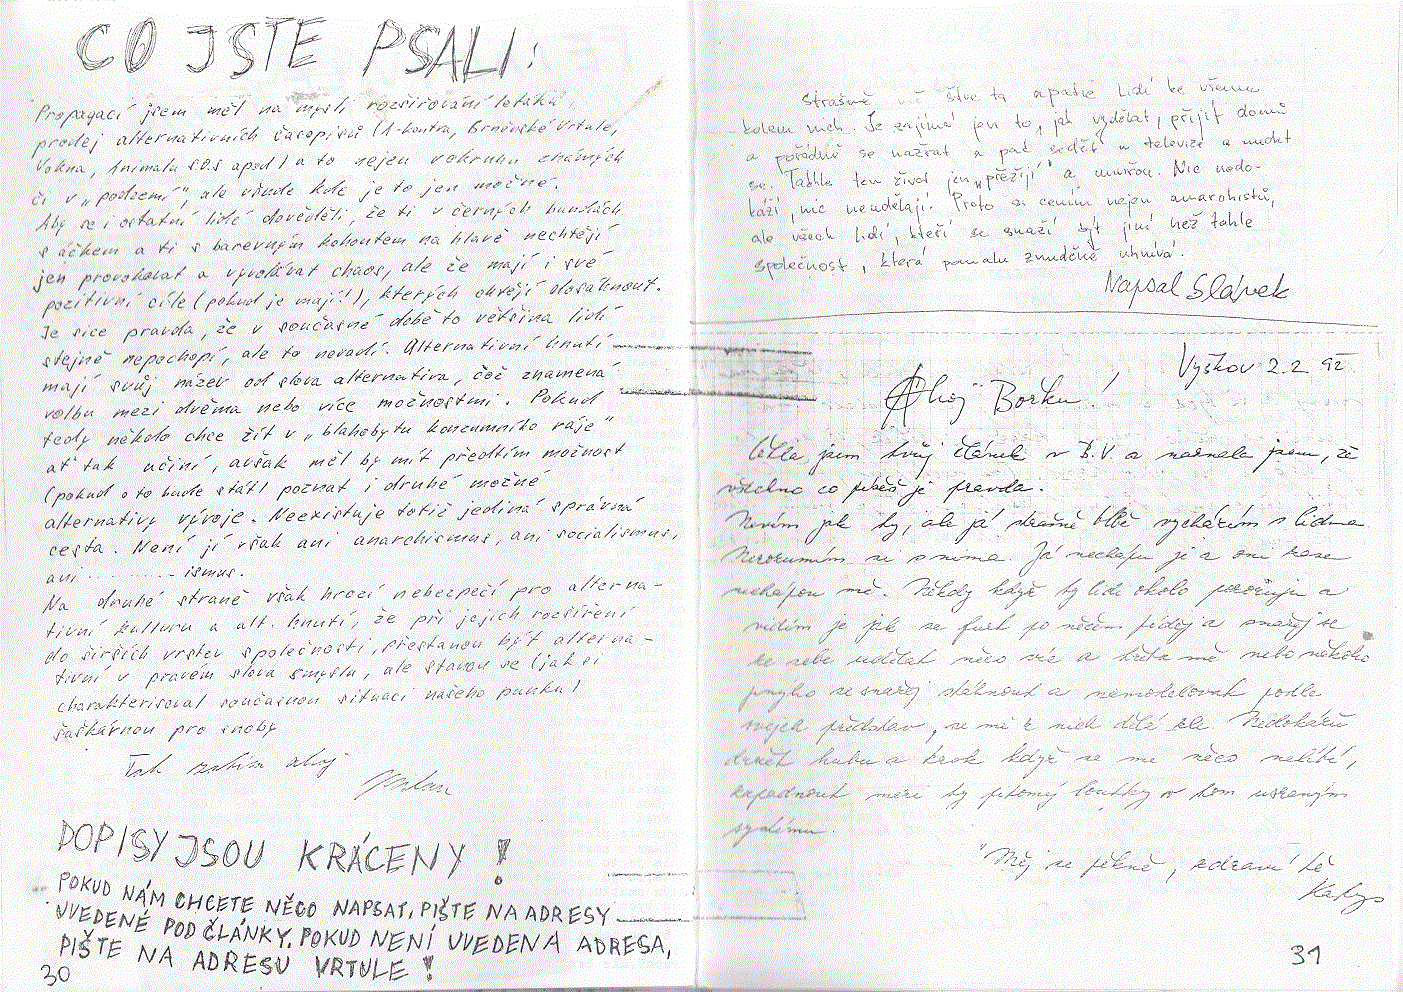 CO JSTE PSALI:
Propagací jsem měl na mysli rozšiřování letáků,
prodej alternativních časopisů (A-kontra, Brněnské Vrtule,
Vokna, Animalu S.O.S apod) a to nejen v okruhu známých
či v „podzemí", ale všude kde je to jen možné.
Aby se i ostatní lidé dověděli, že ti v černých bundách
s áčkem a ti s barevným kohoutem na hlavě nechtějí
jen provokovat a vyvolávat chaos, ale že mají i své
pozitivní cíle (pokud je mají!), kterých chtějí dosáhnout.
Je sice pravda, že v současné době to většina lidí
stejně nepochopí, ale to nevadí. Alternativní hnutí
mají svůj název od slova alternativa, což znamená
volbu mezi dvěma nebo více možnostmi. Pokud
tedy někdo chce žít v „blahobytu konzumního ráje"
ať tak učiní, avšak měl by mít předtím možnost
(pokud o to bude stát) poznat i druhé možné
alternativy vývoje. Neexistuje totiž jediná správná
cesta. Není jí však ani anarchismus, ani socialismus,
ani ......... ismus.
Na druhé straně však hrozí nebezpečí pro alterna-
tivní kulturu a alt. hnutí, že při jejich rozšíření
do širších vrstev společnosti, přestanou být alterna-
tivní v pravém slova smyslu, ale stanou se (jak si
charakterisoval současnou situaci našeho punku)
šaškárnou pro snoby
Tak zatím ahoj
Milan
DOPISY JSOU KRÁCENY!
POKUD NÁM CHCETE NĚCO NAPSAT, PIŠTE NA ADRESY
UVEDENÉ POD ČLÁNKY. POKUD NENÍ UVEDENA ADRESA,
PIŠTE NA ADRESU VRTULE!
30
Strašně mě štve ta apatie lidí ke všemu
kolem nich. Je zajímá jen to, jak vydělat, přijít domů
a pořádně se nažrat a pak sedět u televize a nudit
se. Takhle ten život jen „přežijí" a umřou. Nic nedo-
káží, nic neudělají. Proto si cením nejen anarchistů,
ale všech lidí, kteří se snaží být jiní než tahle
společnost, která pomalu znuděně uhnívá.
Napsal Slávek
Vyškov 2.2. 92
Ahoj Borku!
Četla jsem tvůj článek v B.V. a uznala jsem, že
všechno co píšeš je pravda.
Nevím jak ty, ale já strašně blbě vycházím s lidma
Nerozumím si s nima. Já nechápu je a oni zase
nechápou mě. Někdy když ty lidi okolo pozoruju a
vidím je jak se furt po něčem píděj a snažej se
ze sebe udělat něco víc a třeba mě nebo někoho
jinýho se snažej stáhnout a namodelovat podle
svejch představ, se mi z nich dělá zle. Nedokážu
držet hubu a krok když se mi něco nelíbí,
zapadnout mezi ty pitomý loutky v tom
systému.
Měj se pěkně, zdraví tě
31